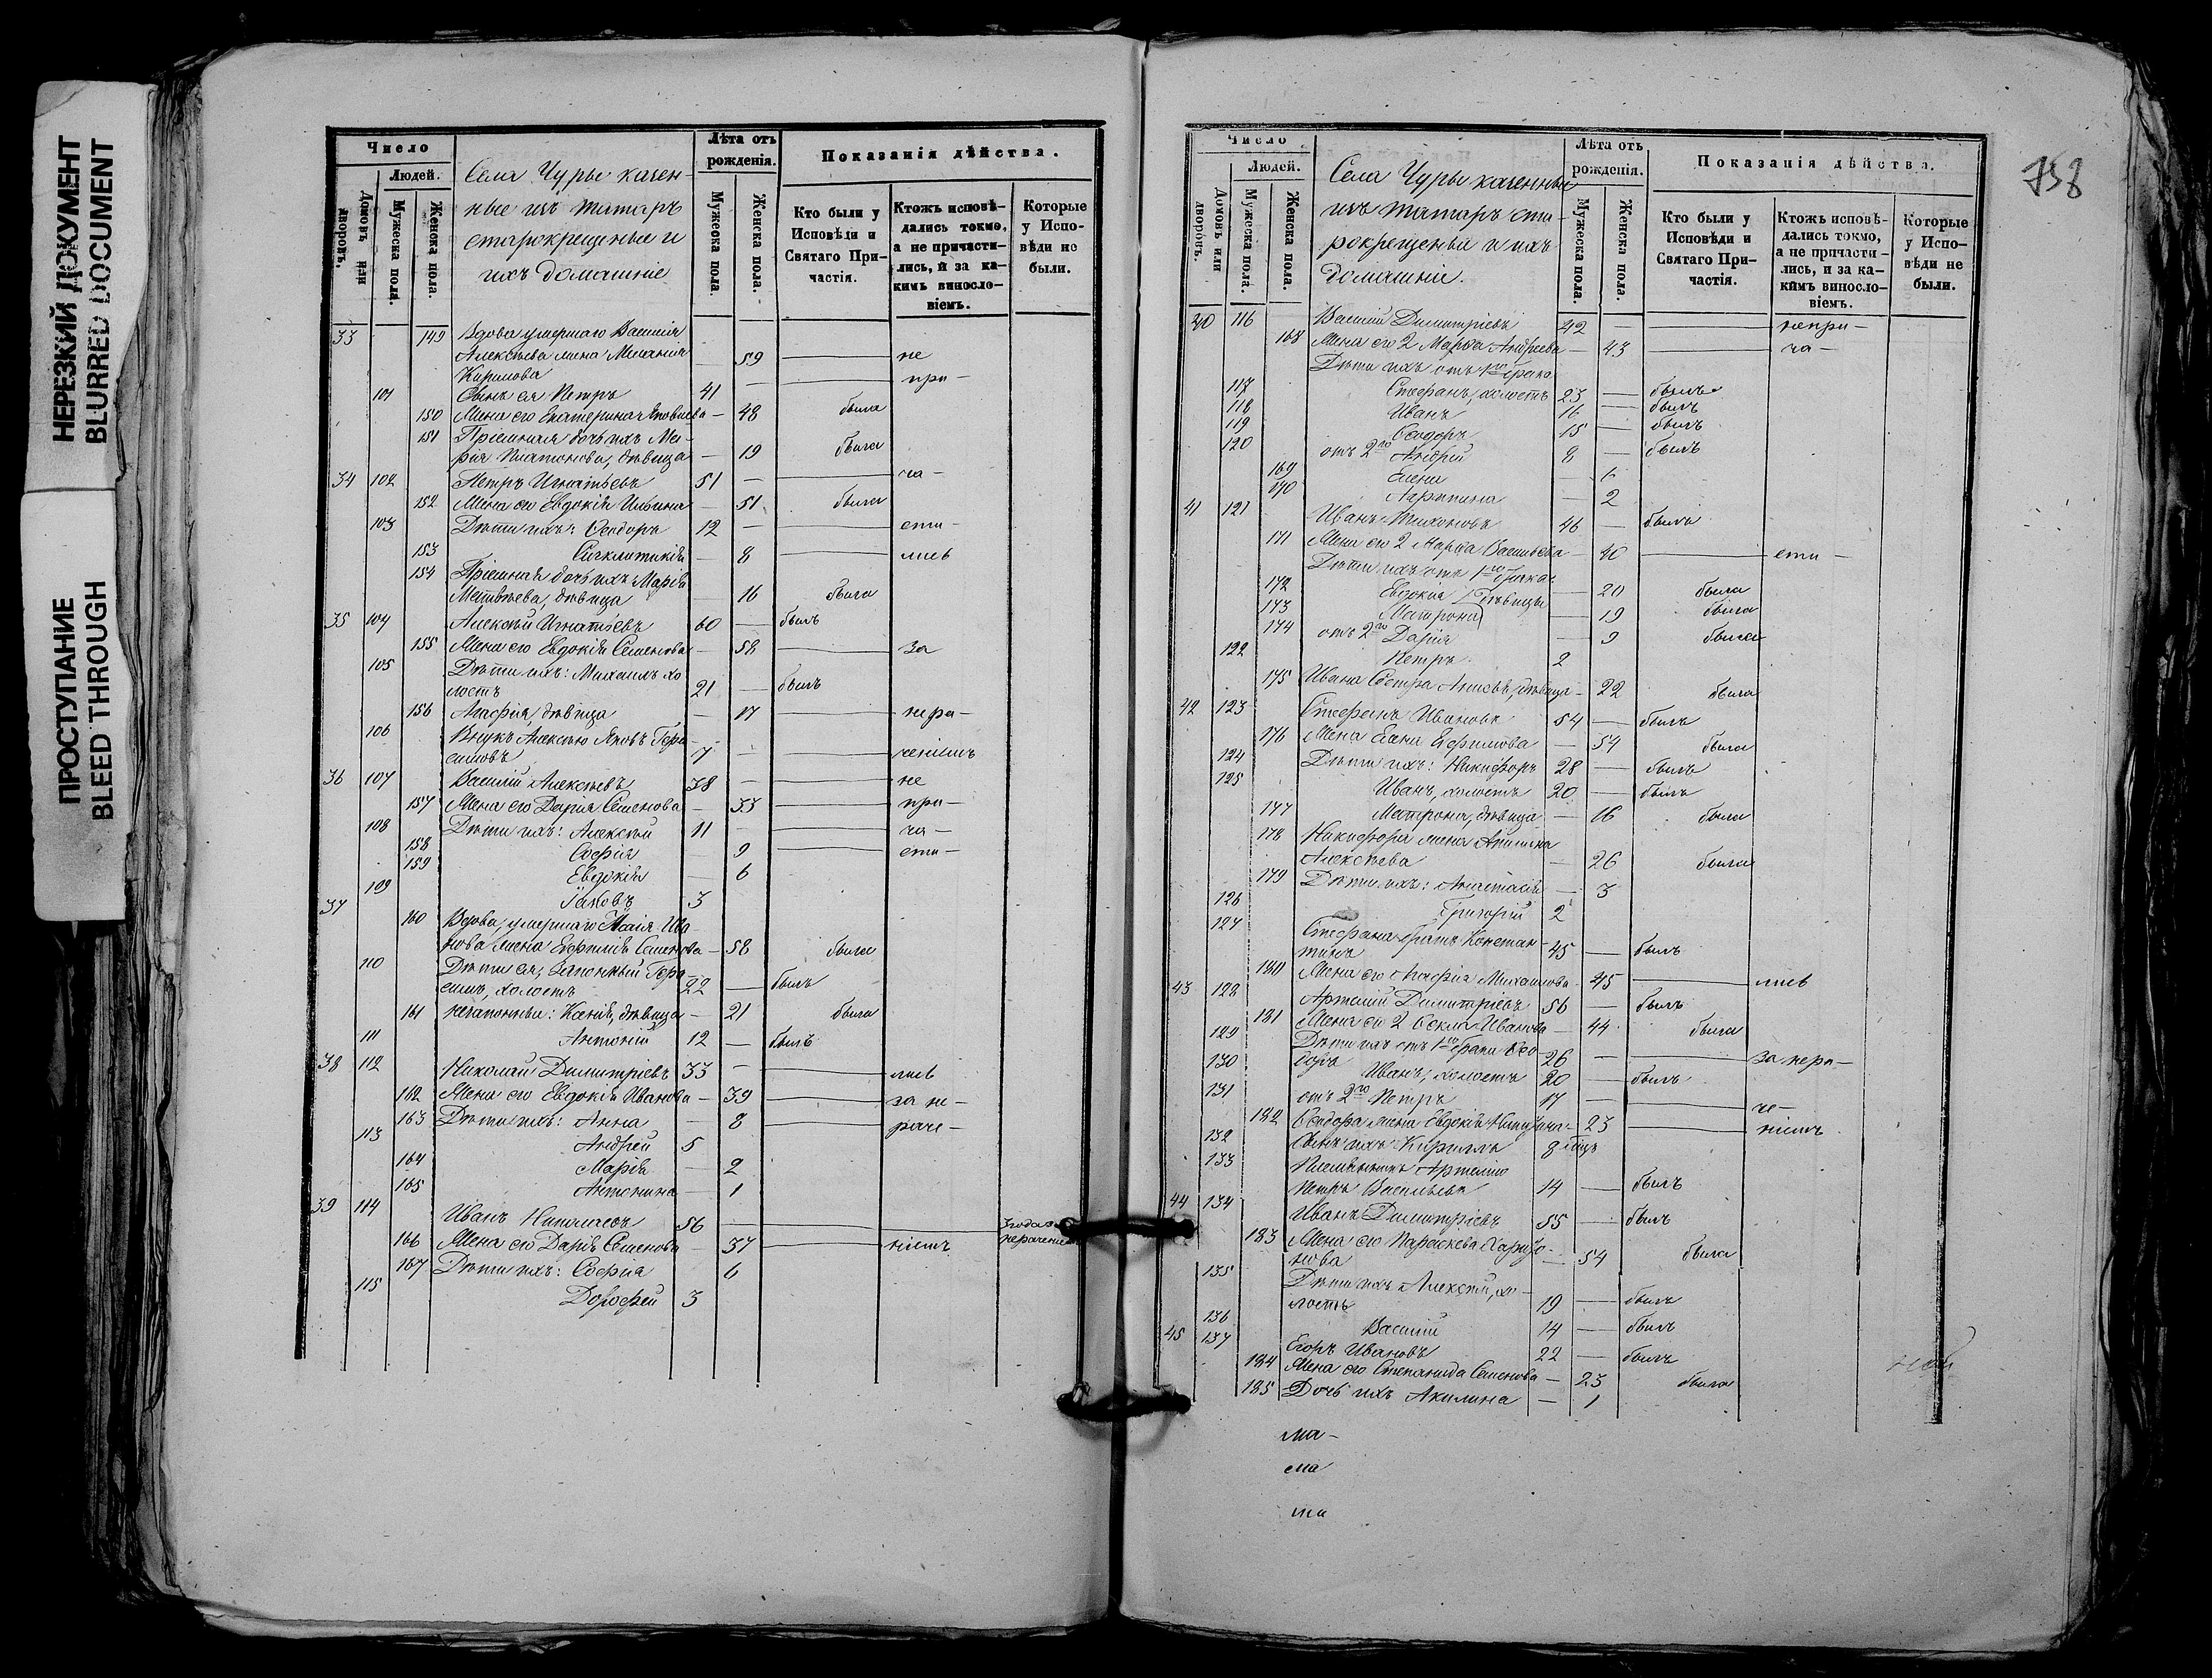 НЕРЕЗКИЙ ДОКУМЕНТ
BLURRED DOCUMENT
ПРОСТУПАНИЕ
BLEED THROUGH
Число
Людей.
Домовъ или дворовъ.
Мужеска пола.
Женска пола.
Села Чуры казен-
ные изъ татаръ
старокрещеные и
ихъ домашніе
Лѣта отъ рожденія.
Мужеска пола.
Женска пола.
Показанія дѣйства.
Кто были у Исповѣди и Святаго При-
частія.
Ктожъ исповѣ-
дались токмо,
а не причасти-
лись, и за ка-
кимъ винословіемъ.
Которые
у Испо-
вѣди не
были.
33 149 Вдова умершаго Василія
Алексѣева жена Меланія — 59 — не
Кирилова
101 Сынъ ея Петръ 41 — при-
150 Жена его Екатерина Яковлева — 48 была
151 Пріемная дочь ихъ Ма-
рія Платонова, дѣвица — 19 была
34 102 Петръ Игнатьевъ 51 — ча-
152 Жена его Евдокія Ильина — 51 была
103 Дѣти ихъ: Ѳеодоръ 12 — сти-
153 Сигклитикія — 8 — лись
154 Пріемная дочь ихъ Марія
Матвѣева, дѣвица 16 была
35 104 Алексѣй Игнатьевъ 60 — былъ
155 Жена его Евдокія Семенова — 58 — за
105 Дѣти ихъ: Михаилъ хо
лостъ 21 — былъ
156 Агафія, дѣвица — 17 — нера-
106 Внукъ Алексѣю Яковъ Гера-
симовъ 7 — ченіемъ
36 107 Василій Алексѣевъ 38 — не
157 Жена его Дарія Семенова — 33 — при-
108 Дѣти ихъ: Алексѣй 11 — ча-
158 Софія — 9 — сти-
159 Евдокія — 6
109 Іаковъ 3
37 160 Вдова, умершаго Ива-
нова жена Евфимія Семенова — 58 была
110 Дѣти ея; Гера-
симъ, холостъ 22 — былъ
161 Ксенія, дѣвица — 21 была
111 Антоній 12 — былъ
38 112 Николай Димитріевъ 33 — лись
162 Жена его Евдокія Иванова — 39 — за не-
163 Дѣти ихъ: Анна — 8 — раче-
113 Андрей 5
164 Марія — 2
165 Антонина — 1
39 114 Иванъ 56 — 3 года за
нераченіемъ
166 Жена его Дарія Семенова — 37 — ніемъ
167 Дѣти ихъ: Софія 6
115 Дорофей 3
758
Число
Людей.
Домовъ или дворовъ.
Мужеска пола.
Женска пола.
Села Чуры казенные
изъ татаръ ста-
рокрещеные и ихъ
домашніе.
Лѣта отъ рожденія.
Мужеска пола.
Женска пола.
Показанія дѣйства.
Кто были у Исповѣди и Святаго При-
частія.
Ктожъ исповѣ-
дались токмо,
а не причасти-
лись, и за ка-
кимъ винословіемъ.
Которые
у Испо-
вѣди не
были.
40 116 Василій Димитріевъ 42 — непри-
168 Жена его 2 Марѳа Андреева — 43 — ча-
Дѣти ихъ отъ 1го брака
117 Стефанъ, холостъ 23 — былъ
118 Иванъ 16 — былъ
119 Ѳеодоръ 15 — былъ
120 отъ 2го Андрей 8 — былъ
169 Елена — 6
170 Агрипина — 2
41 121 Иванъ Тихоновъ 46 — былъ
171 Жена его 2 Марѳа Васильева — 40 — сти-
Дѣти ихъ отъ 1го брака
172 Евдокія дѣвицы — 20 была
173 Матрона — 19 была
174 отъ 2го Дарія — 9 была
122 Петръ 2
175 Ивана Сестра Анисья, дѣвица — 22 была
42 123 Стефанъ Ивановъ 54 — былъ
176 Жена Елена Ефимова — 54 была
124 Дѣти ихъ: Никифоръ 28 — былъ
125 Иванъ, холостъ 20 — былъ
177 Матрона, дѣвица — 16 была
178 Никифора жена
Алексѣева — 26 была
179 Дѣти ихъ: Анастасія — 3
126 Григорій 2
127 Стефана братъ Констан-
тинъ 45 — былъ
180 Жена его Агафія Михаилова — 45 — лись
43 128 Артемій Димитріевъ 56 — былъ
181 Жена его 2 Ѳекла Иванова — 44 была
129 Дѣти ихъ отъ 1го брака Ѳео
доръ 26 — за нера-
130 Иванъ, холостъ 20 — былъ
131 отъ 2го Петръ 17 — че-
182 Ѳеодора жена Евдокія — 23 — ніемъ
132 Сынъ ихъ Кириллъ 8
133 Племянникъ Артемію
Петръ Васильевъ 14 — былъ
44 134 Иванъ Димитріевъ 55 — былъ
183 Жена его Параскева Харито-
нова — 54 была
135 Дѣти ихъ Алексѣй, хо-
лостъ 19 — былъ
136 Василій 14 — былъ
45 137 Егоръ Ивановъ 22 — былъ
184 Жена его Степанида Семенова — 23 была
185 Дочь ихъ Акилина — 1